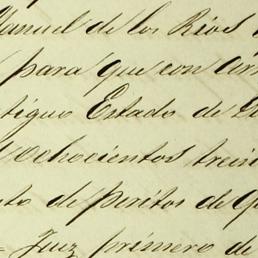 Manuel de los Rios
para que con
tiguo Estado de
ochocientos trein
to de peritos de
Juez primero de